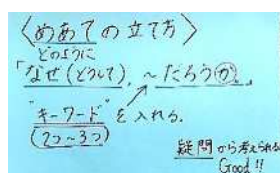 〈めあての立て方〉
どのように
「なぜ(どうして)、~だろうか。」
"キーワード"を入れる。
(2つ~3つ)
疑問から考えられる
Good!!